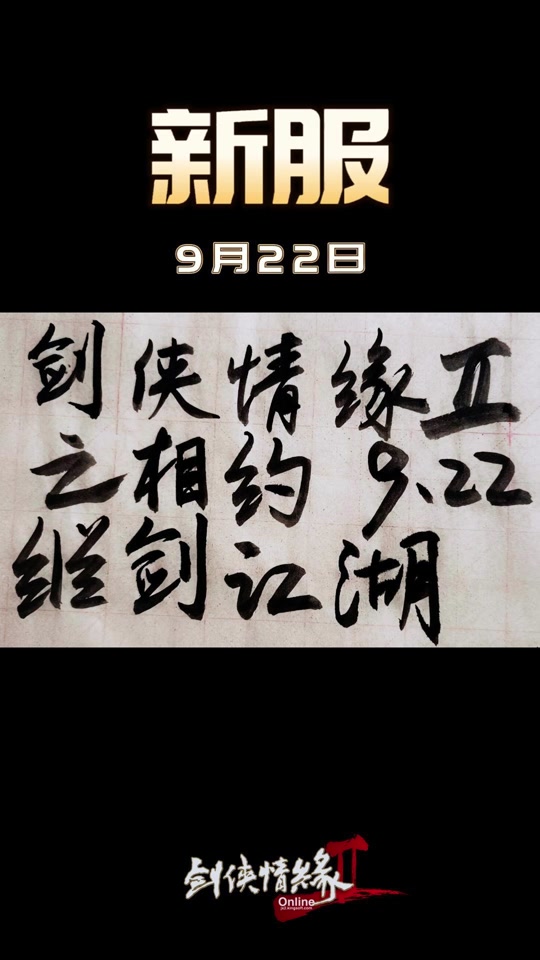 新服
9月22日
剑侠情缘Ⅱ
之相约 9.22
纵剑江湖
剑侠情缘Ⅱ
Online
jx2.kingsoft.com